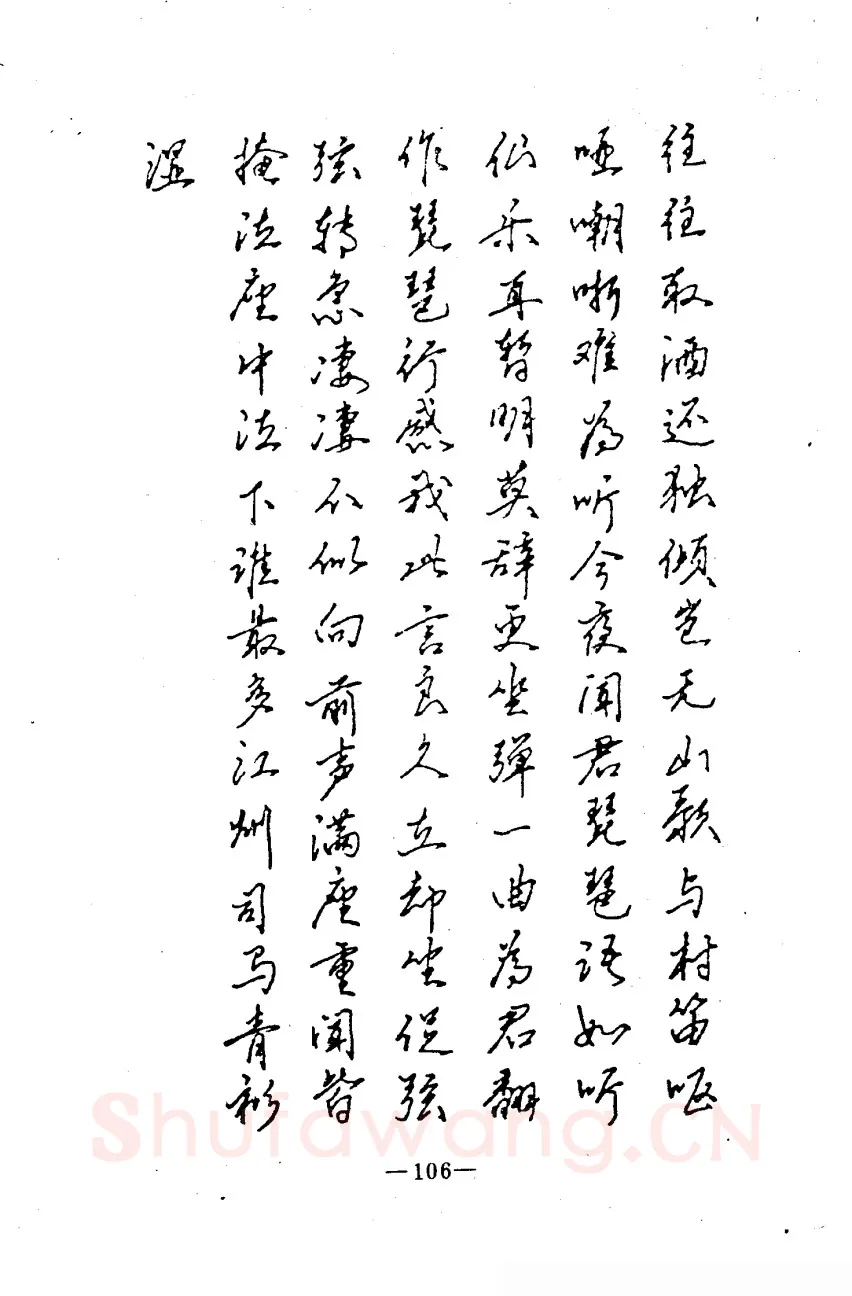 往往取酒还独倾岂无山歌与村笛呕
哑嘲哳难为听今夜闻君琵琶语如听
仙乐耳暂明莫辞更坐弹一曲为君翻
作琵琶行感我此言良久立却坐促弦
弦转急凄凄不似向前声满座重闻皆
掩泣座中泣下谁最多江州司马青衫
湿
Shufawang.CN
—106—